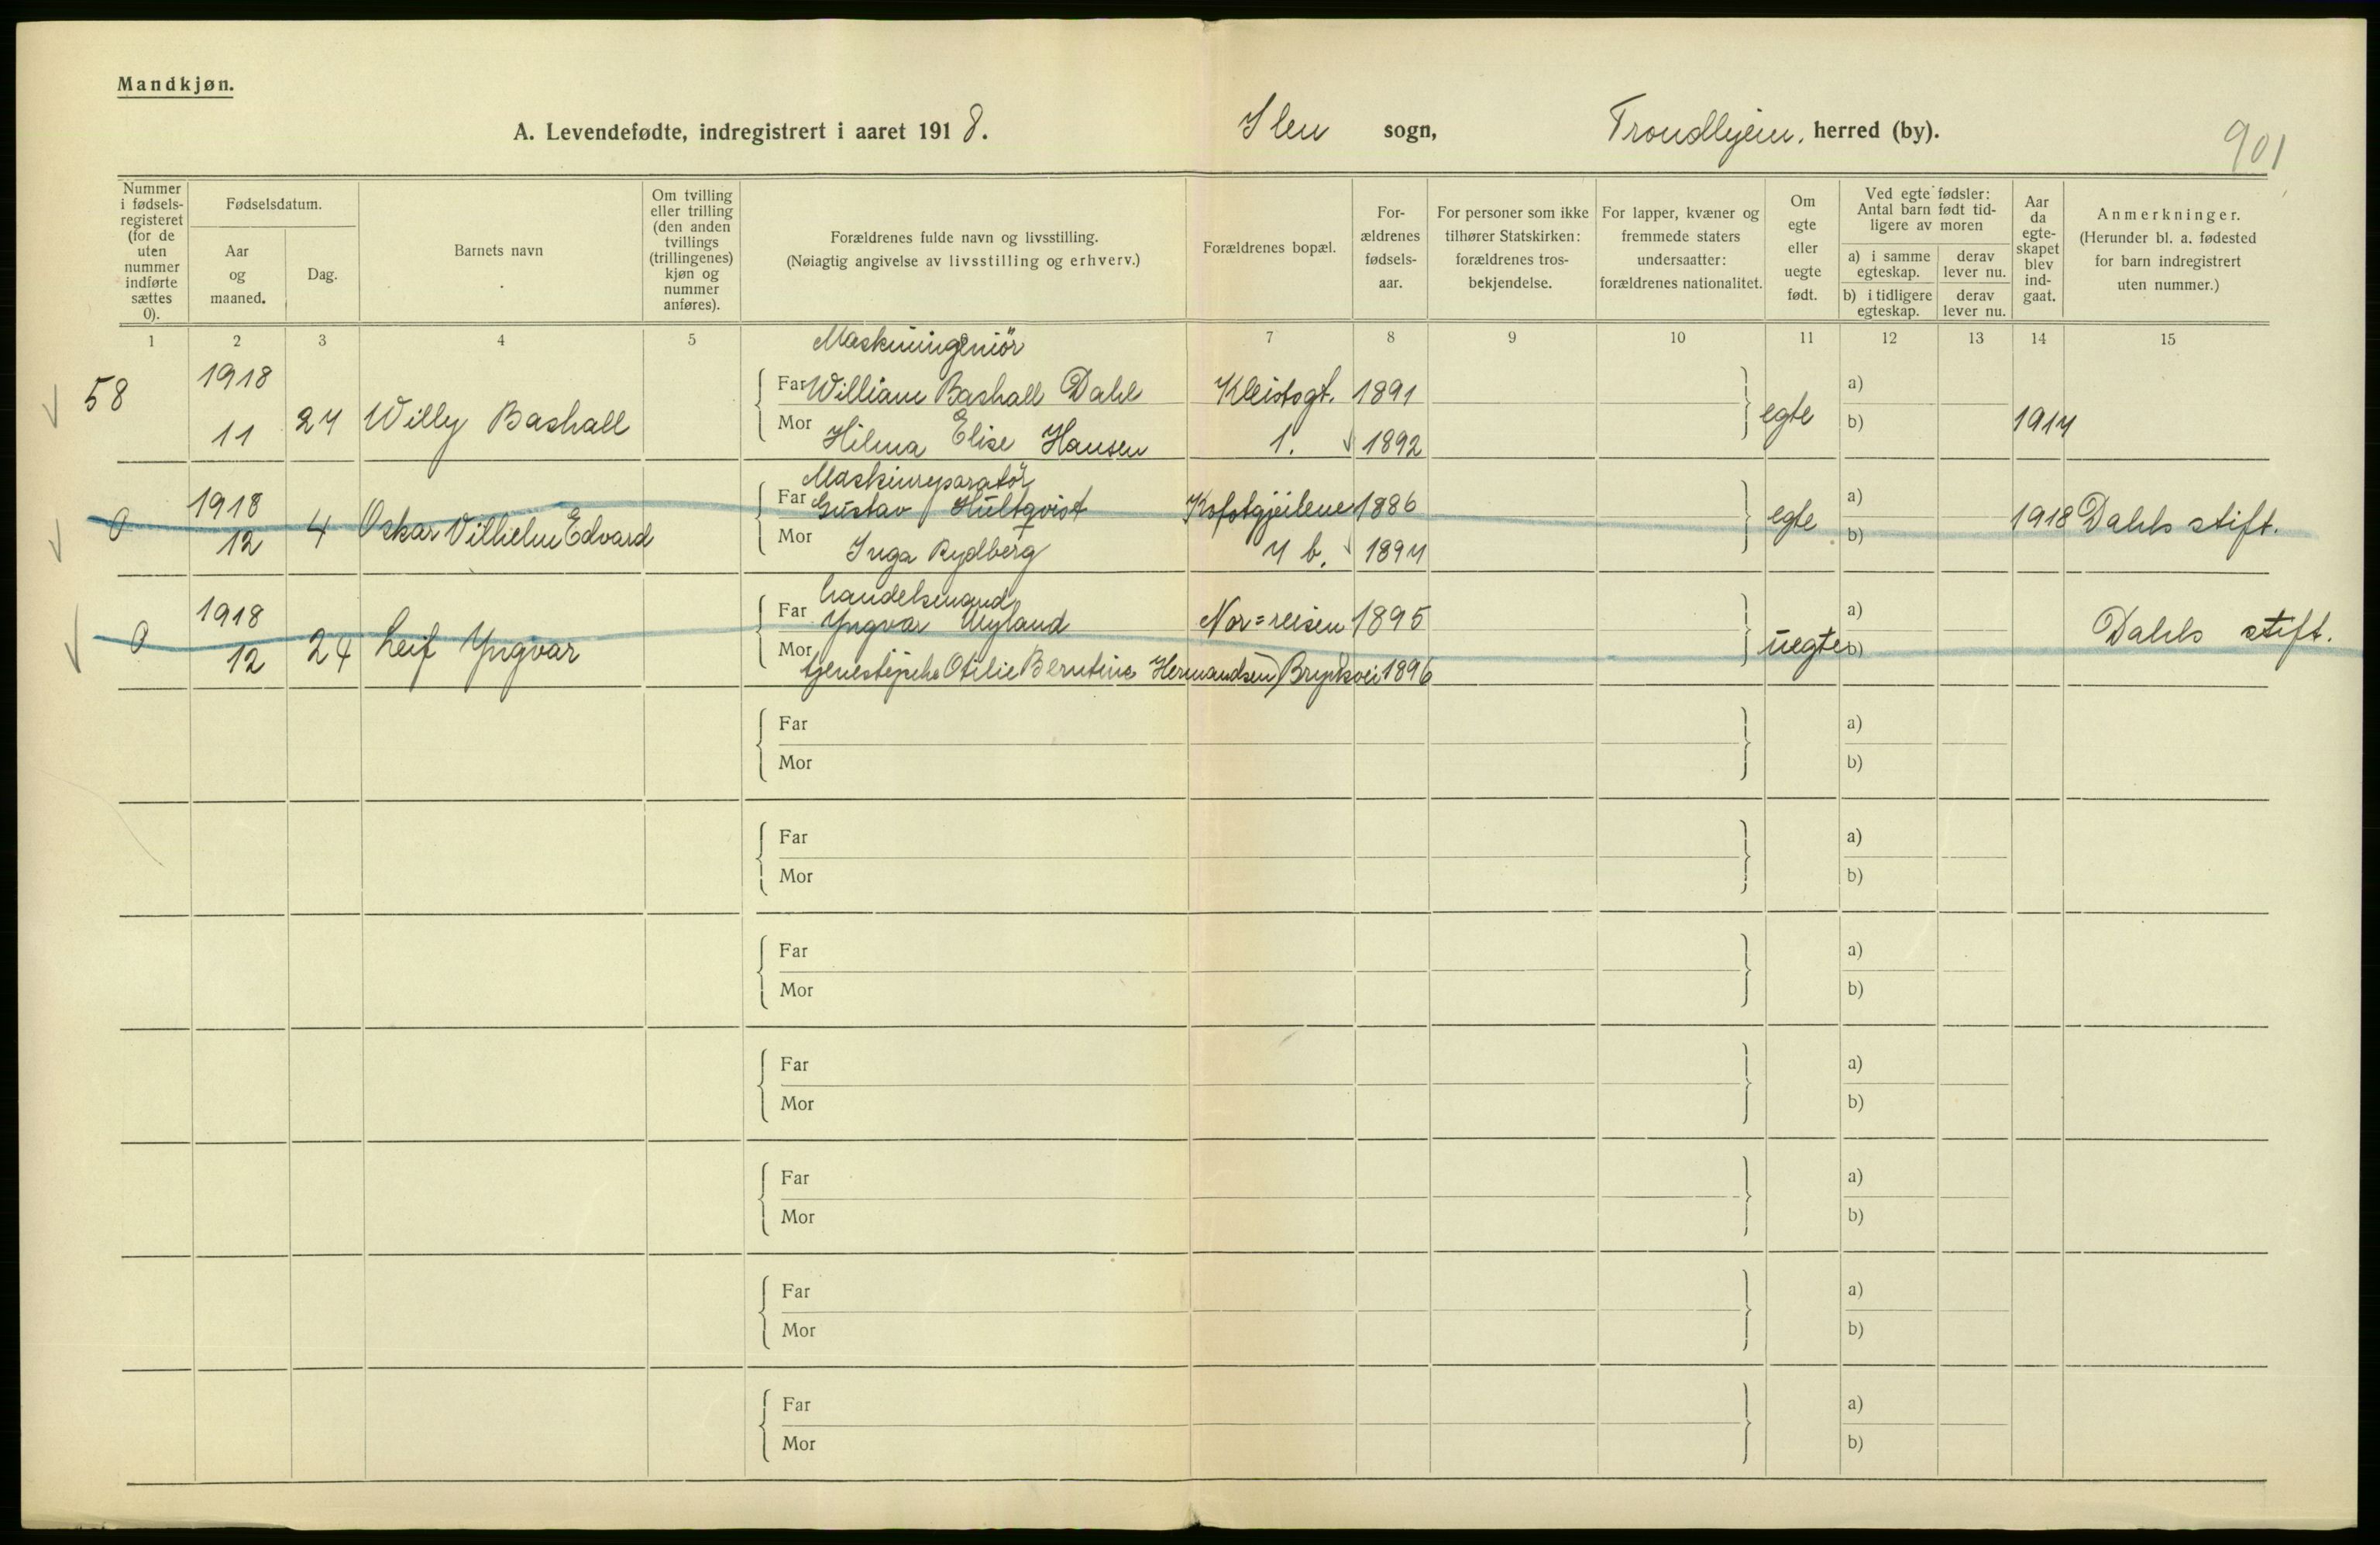 Mandkjøn.
A. Levendefødte, indregistrert i aaret 1918. Ilen sogn, Trondhjem. herred (by).
901
Nummer i fødselsregisteret (for de uten nummer indførte sættes 0).
Fødselsdatum.
Aar og maaned.
Dag.
Barnets navn
Om tvilling eller trilling (den anden tvillings (trillingenes) kjøn og nummer anføres).
Forældrenes fulde navn og livsstilling.
(Nøiagtig angivelse av livsstilling og erhverv.)
Forældrenes bopæl.
For-
ældrenes
fødsels-
aar.
For personer som ikke
tilhører Statskirken:
forældrenes tros-
bekjendelse.
For lapper, kvæner og
fremmede staters
undersaatter:
forældrenes nationalitet.
Om
egte
eller
uegte
født.
Ved egte fødsler:
Antal barn født tid-
ligere av moren
a) i samme egteskap.
derav lever nu.
b) i tidligere egteskap.
derav lever nu.
Aar
da
egte-
skapet
blev
ind-
gaat.
Anmerkninger.
(Herunder bl. a. fødested
for barn indregistrert
uten nummer.)
1 2 3 4 5 7 8 9 10 11 12 13 14 15
Maskiningeniör
58 1918 Far William Bashall Dahl Kleistsgt. 1891 a)
11 27 Willy Bashall Mor Hilma Elise Hansen 1. 1892 egte b) 1917
Maskinreparatör
0 1918 Far Gustav Hultqvist 1886 a)
12 4 Oskar Vilhelm Edvard Mor Inga Rydberg 7 b. 1897 egte b) 1918 Dahls stift.
handelsmand
0 1918 Far Yngvar Myland 1895 a)
12 24 Leif Yngvar Mor Otilie Berntine Hermandsen 1896 uegte b) Dahls stift.
Far a)
Mor b)
Far a)
Mor b)
Far a)
Mor b)
Far a)
Mor b)
Far a)
Mor b)
Far a)
Mor b)
Far a)
Mor b)